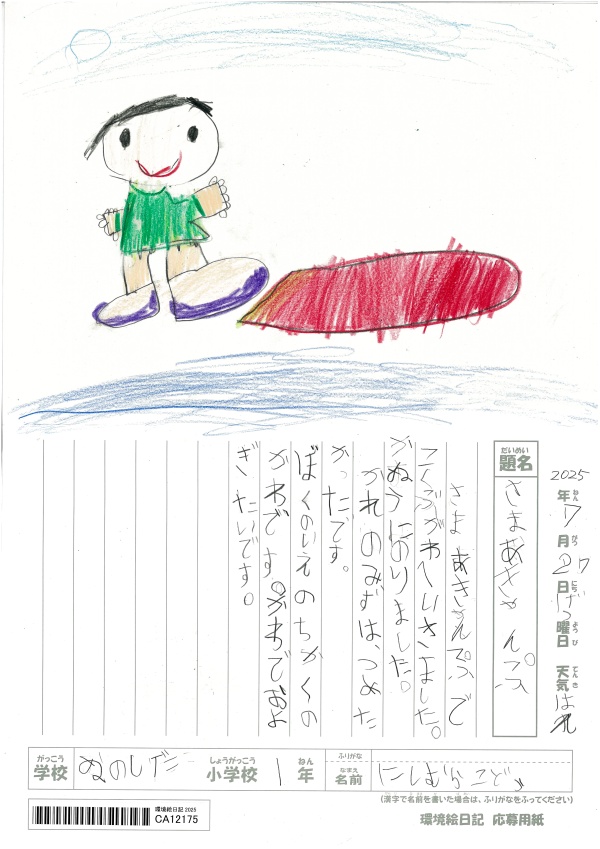 2025年7月27日げつ曜日 天気 はれ
ねん
がつ
にち
ようび
てんき
だいめい
題名
さまあきゃんぷ
さまあきゃんぷで
こくぶがわへいきました。
かぬうにのりました。
かわのみずは、つめた
かったです。
ぼくのいえのちかくの
かわです。かわでおよ
ぎたいです。
がっこう
学校
ぬのしだ
しょうがっこう
小学校
1
ねん
年
ふりがな
なまえ
名前
にしむら
(漢字で名前を書いた場合は、ふりがなをふってください)
環境絵日記2025
CA12175
環境絵日記 応募用紙